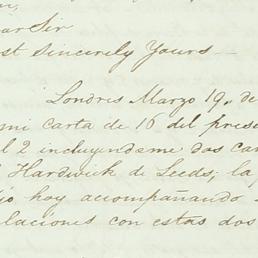 ar Sir
st Sincerely Yours
Londres Marzo 19. de
mi carta de 16 del prese
l 2 incluyendome dos car
Hardwick de Leeds; la
jo hoy acompañando
laciones con estas dos